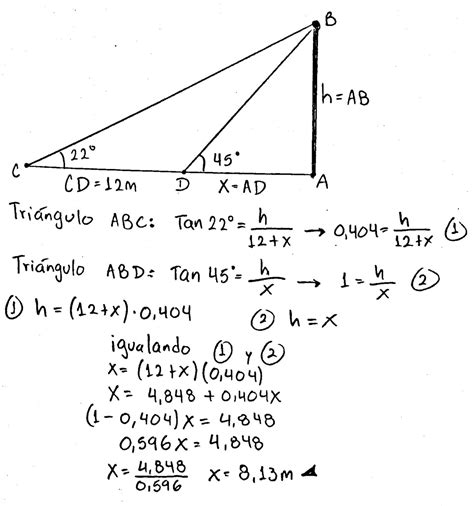 B
h=AB
22°
45°
C
CD=12m
D
X=AD
A
Triángulo ABC: Tan 22°= h/12+x → 0,404= h/12+x ①
Triángulo ABD: Tan 45°= h/x → 1= h/x ②
① h=(12+x)·0,404
② h=x
igualando ① y ②
x=(12+x)(0,404)
x= 4,848 + 0,404x
(1-0,404)x = 4,848
0,596x = 4,848
x= 4,848/0,596 x= 8,13m